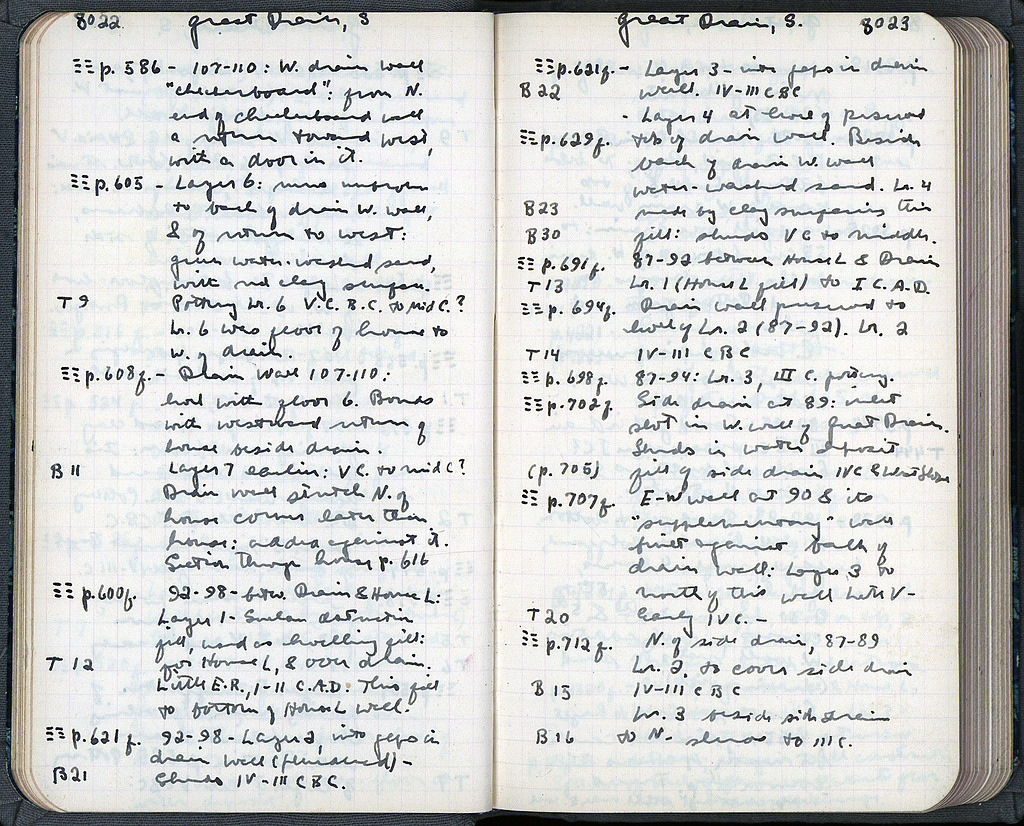 8022 Great Drain, S
ΞΞ p. 586 - 107-110: W. drain wall
"checkerboard": from N.
end of checkerboard wall
a return toward west,
with a door in it.
ΞΞ p. 605 - Layer 6: runs unbroken
to back of drain W. wall,
& of return to west:
green water-washed sand,
with red clay surface.
T 9 Pottery Lr. 6 V C. B.C. to mid C.?
Lr. 6 was floor of house to
W. of drain.
ΞΞ p. 608f. - Drain Wall 107-110:
level with floor 6. Bonds
with westward return of
house beside drain.
B 11 Layer 7 earlier: V C. to mid C?
Drain wall stretch N. of
house corner later than
house: added against it.
Section through house p. 616
ΞΞ p. 600f. 92-98 - betw. Drain & House L:
Layer 1 - Sullan destruction
fill, used as levelling fill:
T 12 for House L, & over drain.
Little E.R., I-II C. A.D. This fill
to bottom of House L wall.
ΞΞ p. 621f. 92-98 - Layer 2, into gaps in
drain wall (plundered) -
B21 Sherds IV-III C BC.
Great Drain, S. 8023
ΞΞ p. 621f. - Layer 3 - into gaps in drain
B 22 wall. IV-III C BC
- Layer 4 at level of preserved
ΞΞ p. 629f. top of drain wall. Beside
back of drain W. wall
water-washed sand. Lr. 4
B23 made by clay surfaces this
B30 fill: sherds V C to middle.
ΞΞ p. 691f. 87-92 between House L & Drain
T 13 Lr. 1 (House L fill) to I C. A.D.
ΞΞ p. 694f. Drain wall preserved to
level of Lr. 2 (87-92). Lr. 2
T14 IV-III C BC
ΞΞ p. 698f. 87-94: Lr. 3, III C. pottery.
ΞΞ p. 702f. Side drain at 89: inlet
slot in W. wall of Great Drain.
Sherds in water deposit
(p. 705) fill of side drain IVC & West Slope
ΞΞ p. 707f. E-W wall at 90 & its
"supplementary" wall
built against back of
drain wall: Layer 3 to
north of this wall Late V-
T 20 Early IV C. -
ΞΞ p. 712f. N. of side drain, 87-89
Lr. 2, to cover side drain
B 15 IV-III C BC
Lr. 3 beside side drain
B 16 to N. - sherds to III C.